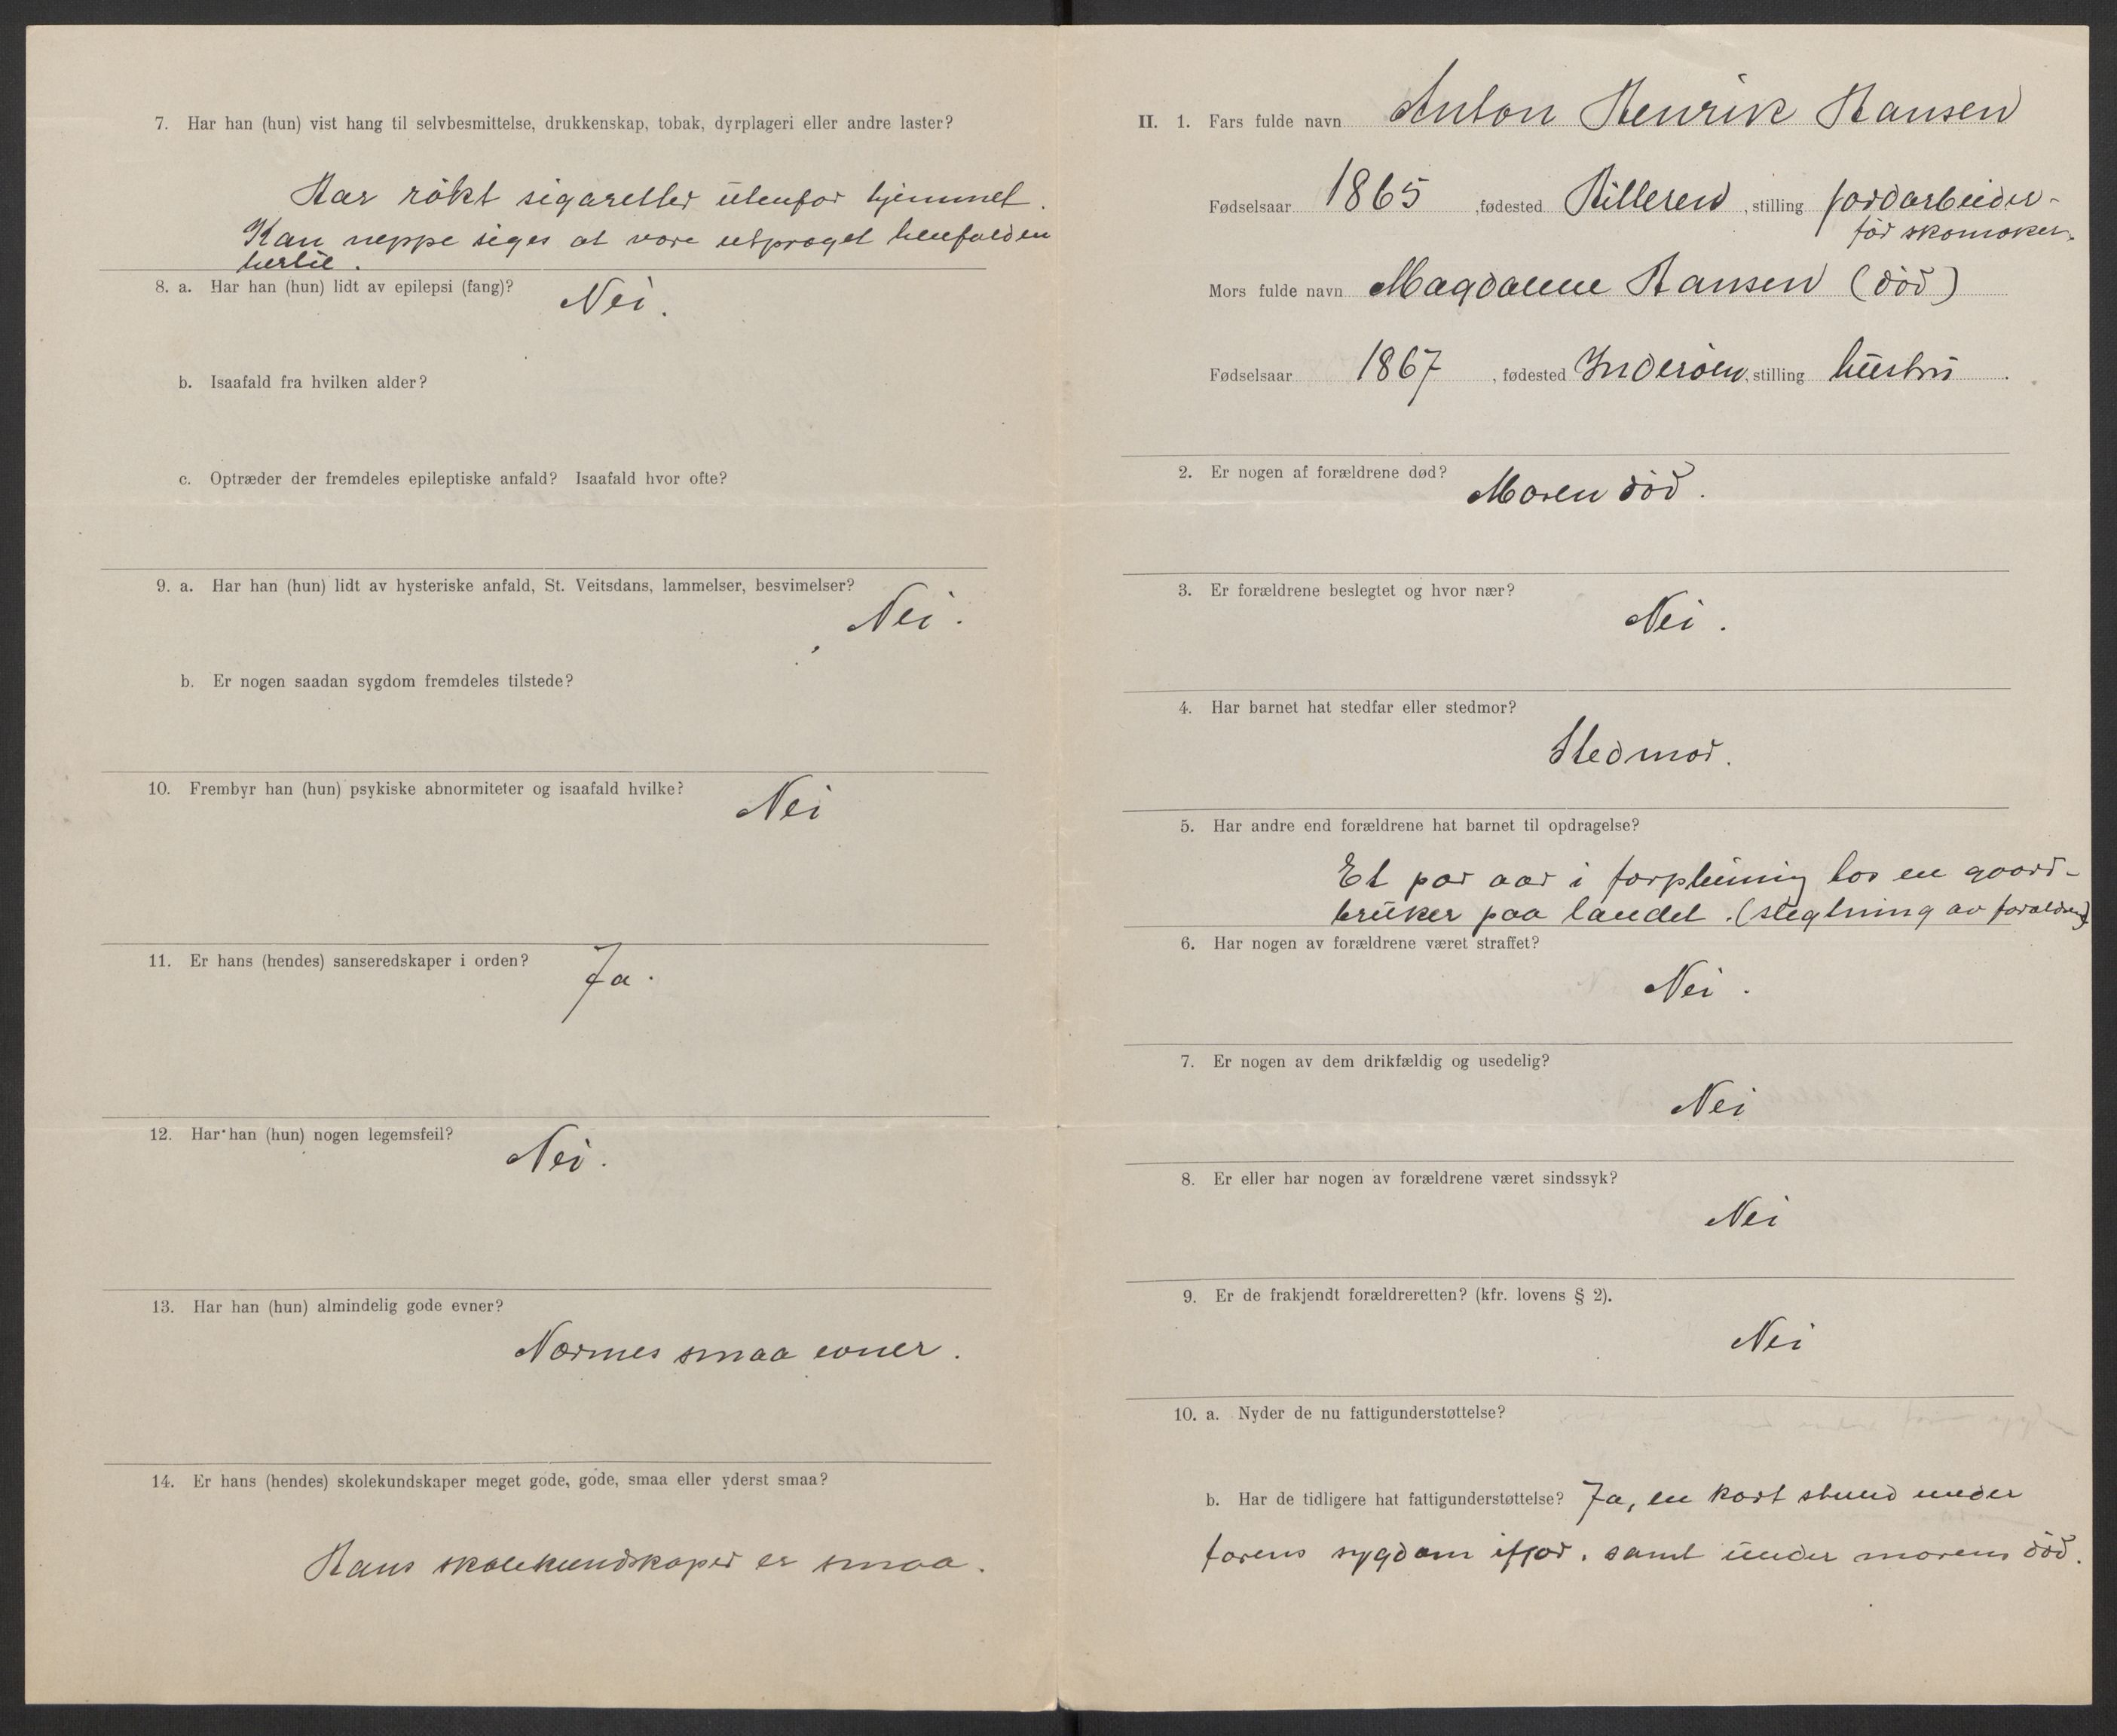 7. Har han (hun) vist hang til selvbesmittelse, drukkenskap, tobak, dyrplageri eller andre laster?
Har rökt sigaretter utenfor hjemmet.
Kan neppe siges at være utpræget henfalden
hertil.
8. a. Har han (hun) lidt av epilepsi (fang)?
Nei.
b. Isaafald fra hvilken alder?
c. Optræder der fremdeles epileptiske anfald? Isaafald hvor ofte?
9. a. Har han (hun) lidt av hysteriske anfald, St. Veitsdans, lammelser, besvimelser?
Nei.
b. Er nogen saadan sygdom fremdeles tilstede?
10. Frembyr han (hun) psykiske abnormiteter og isaafald hvilke?
Nei
11. Er hans (hendes) sanseredskaper i orden?
Ja.
12. Har han (hun) nogen legemsfeil?
Nei.
13. Har han (hun) almindelig gode evner?
Nærmes smaa evner.
14. Er hans (hendes) skolekundskaper meget gode, gode, smaa eller yderst smaa?
Hans skolekundskaper er smaa.
II. 1. Fars fulde navn Anton Henrik Hansen
Fødselsaar 1865, fødested Hilleren, stilling jordarbeider-
för skomaker.
Mors fulde navn Magdalene Hansen (död)
Fødselsaar 1867, fødested Inderöen, stilling hustru.
2. Er nogen af forældrene død?
Moren död.
3. Er forældrene beslegtet og hvor nær?
Nei.
4. Har barnet hat stedfar eller stedmor?
Stedmor.
5. Har andre end forældrene hat barnet til opdragelse?
Et par aar i forpleining hos en gaard-
bruker paa landet. (slegtning av forældrene)
6. Har nogen av forældrene været straffet?
Nei.
7. Er nogen av dem drikfældig og usedelig?
Nei
8. Er eller har nogen av forældrene været sindssyk?
Nei
9. Er de frakjendt forældreretten? (kfr. lovens § 2).
Nei
10. a. Nyder de nu fattigunderstøttelse?
b. Har de tidligere hat fattigunderstøttelse? Ja, en kort stund under
farens sygdom ifjor. samt under morens död.